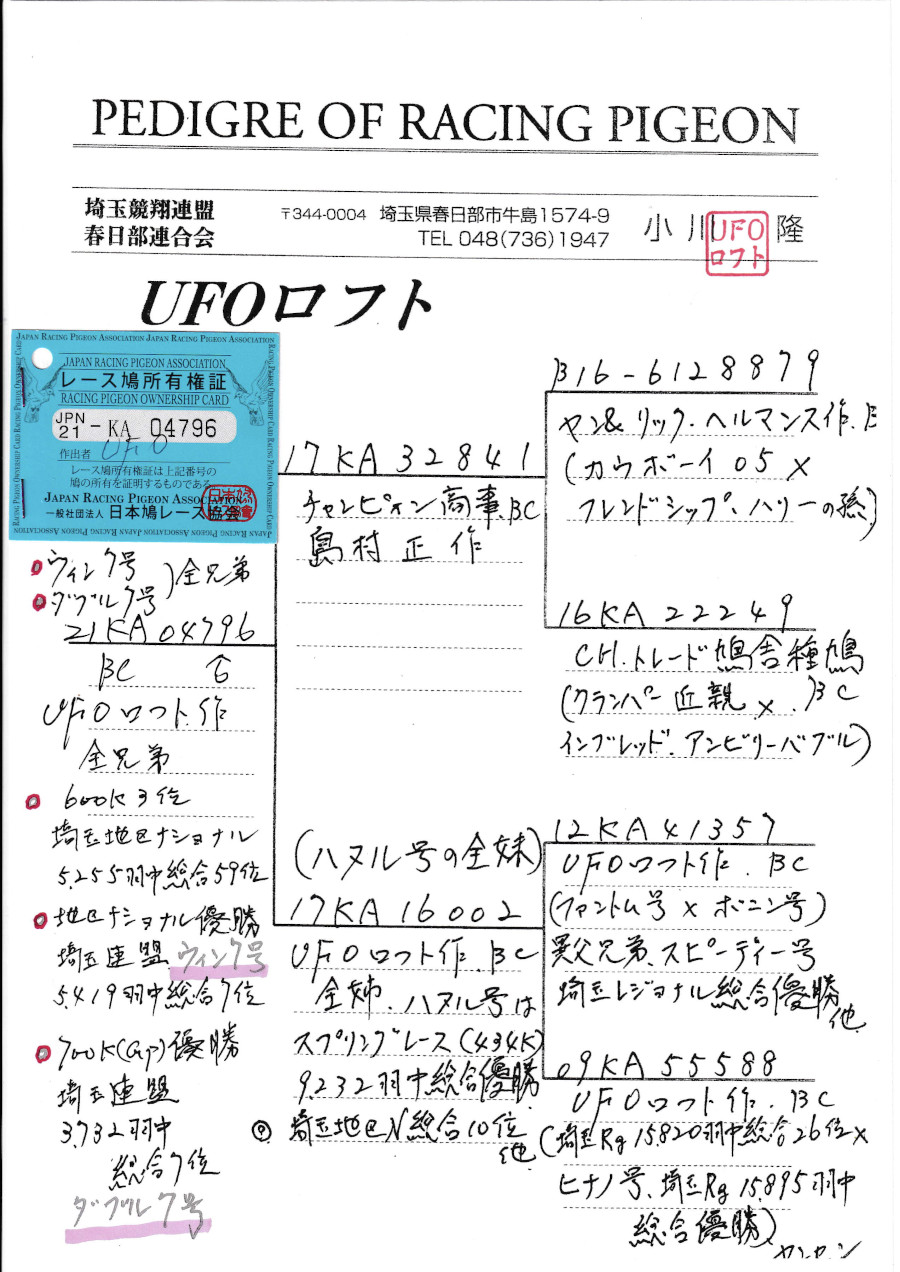 PEDIGRE OF RACING PIGEON
埼玉競翔連盟
春日部連合会
〒344-0004 埼玉県春日部市牛島1574-9
TEL 048(736)1947
小川 隆
UFO
ロフト
UFOロフト
JAPAN RACING PIGEON ASSOCIATION JAPAN RACING PIGEON ASSOCIATION
JAPAN RACING PIGEON ASSOCIATION
レース鳩所有権証
RACING PIGEON OWNERSHIP CARD
JPN
21 - KA 04796
作出者 UFO
レース鳩所有権証は上記番号の
鳩の所有を証明するものである
JAPAN RACING PIGEON ASSOCIATION
一般社団法人 日本鳩レース協会
ウィン7号
ダブル7号
)全兄弟
21KA04796
BC ♂
UFOロフト作
全兄弟
600K3位
埼玉地区ナショナル
5,255羽中総合59位
地区ナショナル優勝
埼玉連盟 ウィン7号
5,419羽中総合7位
700K(Gp)優勝
埼玉連盟
3,732羽中
総合7位
ダブル7号
17KA32841
チャンピオン商事.BC
島村正作
(ハヌル号の全妹)
17KA16002
UFOロフト作.BC
全姉.ハヌル号は
スプリングレース(434K)
9,232羽中総合優勝
埼玉地区N総合10位
他
B16-6128879
ヤン&リック.ヘルマンス作.B
(カウボーイ05×
フレンドシップ.ハリーの孫)
16KA22249
CH.トレード鳩舎種鳩
(クランパー近親×.)BC
インブレッド.アンビリーバブル)
12KA41357
UFOロフト作.BC
(ファントム号×ボニン号)
異父兄弟.スピーディー号
埼玉レジョナル総合優勝
他
09KA55588
UFOロフト作.BC
(埼玉Rg15,820羽中総合26位×
ヒナノ号、埼玉Rg15,895羽中
総合優勝)